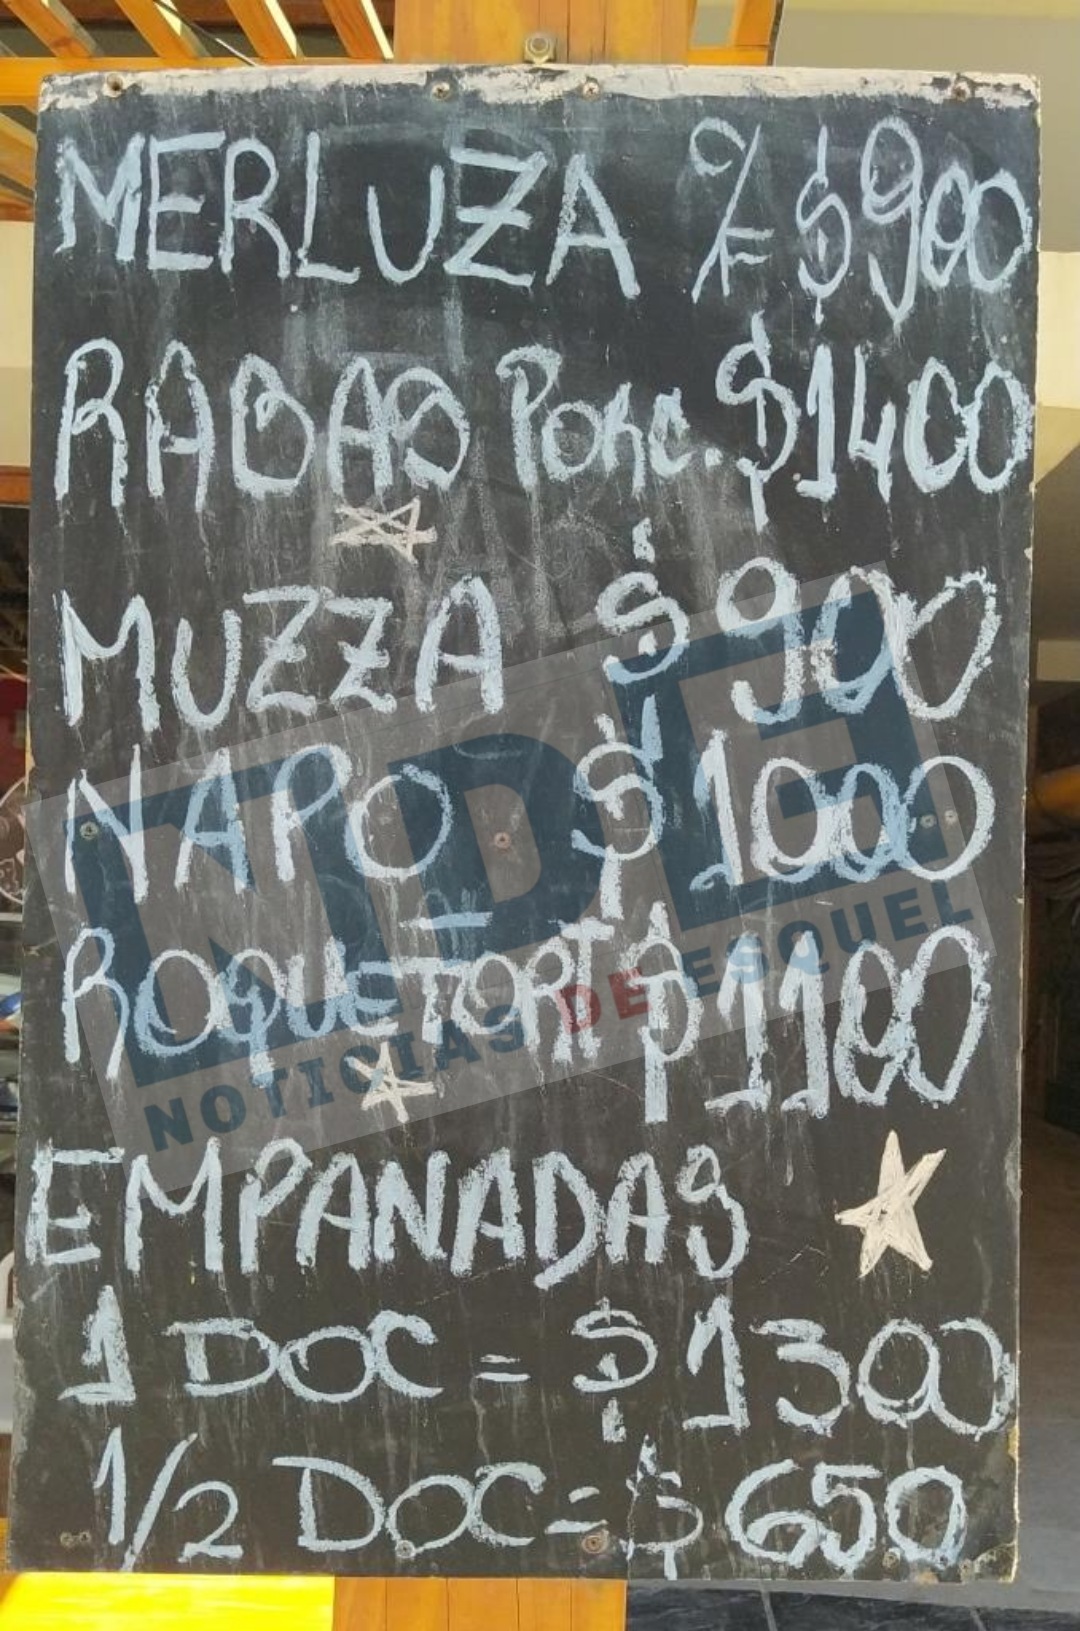 MERLUZA C/F $900
RABAS Porc. $1400
MUZZA $900
NAPO $1000
ROQUEFORT $1100
EMPANADAS
1 DOC = $1300
1/2 DOC = $650
NDE
NOTICIAS DE ESQUEL